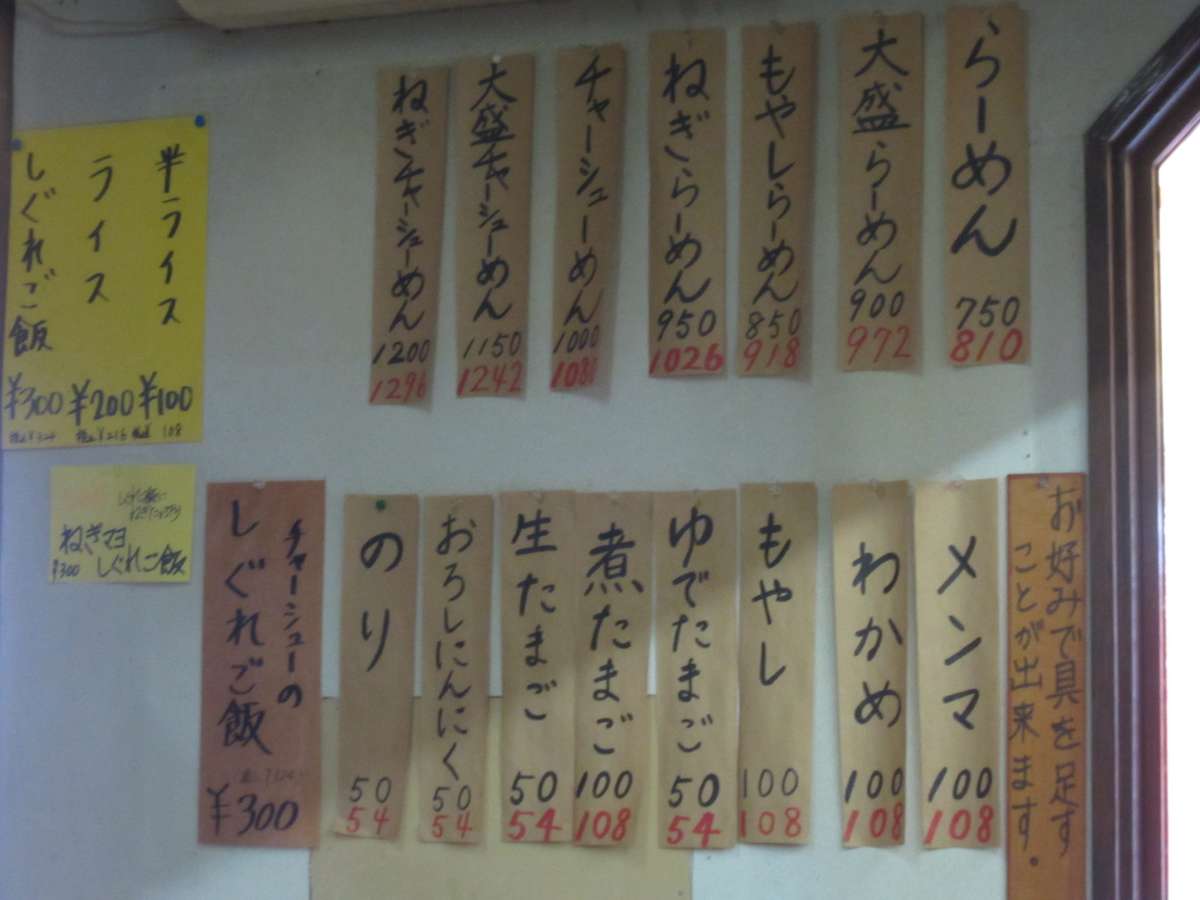 らーめん
750
810
大盛らーめん
900
972
もやしらーめん
850
918
ねぎらーめん
950
1026
チャーシューめん
1000
1080
大盛チャーシューめん
1150
1242
ねぎチャーシューめん
1200
1296
半ライス
¥100
108
ライス
¥200
税込¥216
しぐれご飯
¥300
税込¥324
お好みで具を足す
ことが出来ます。
メンマ
100
108
わかめ
100
108
もやし
100
108
ゆでたまご
50
54
煮たまご
100
108
生たまご
50
54
おろしにんにく
50
54
のり
50
54
チャーシューの
しぐれご飯
¥300
ねぎマヨ
しぐれご飯
¥300